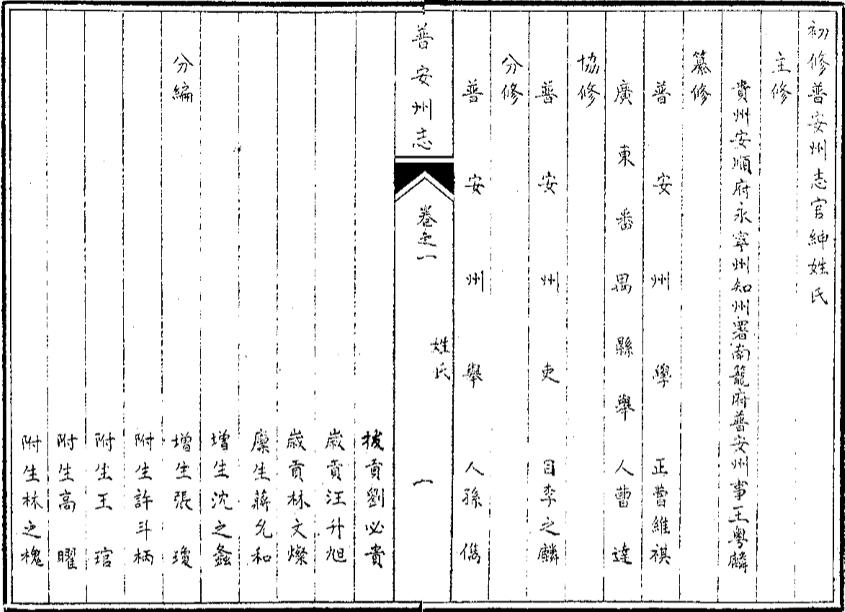 初修普安州志官紳姓氏
主修
貴州安順府永寧州知州署南籠府普安州事王粵麟
纂修
普安州學正曹維祺
廣東番禺縣舉人曹達
協修
普安州吏目李之麟
分修
普安州舉人孫儁
普安州志
卷之一
姓氏
一
拔貢劉必貴
歲貢汪升旭
歲貢林文燦
廩生蔣允和
增生沈之螽
分編
增生張瓊
附生許斗柄
附生王琯
附生高曜
附生林之槐